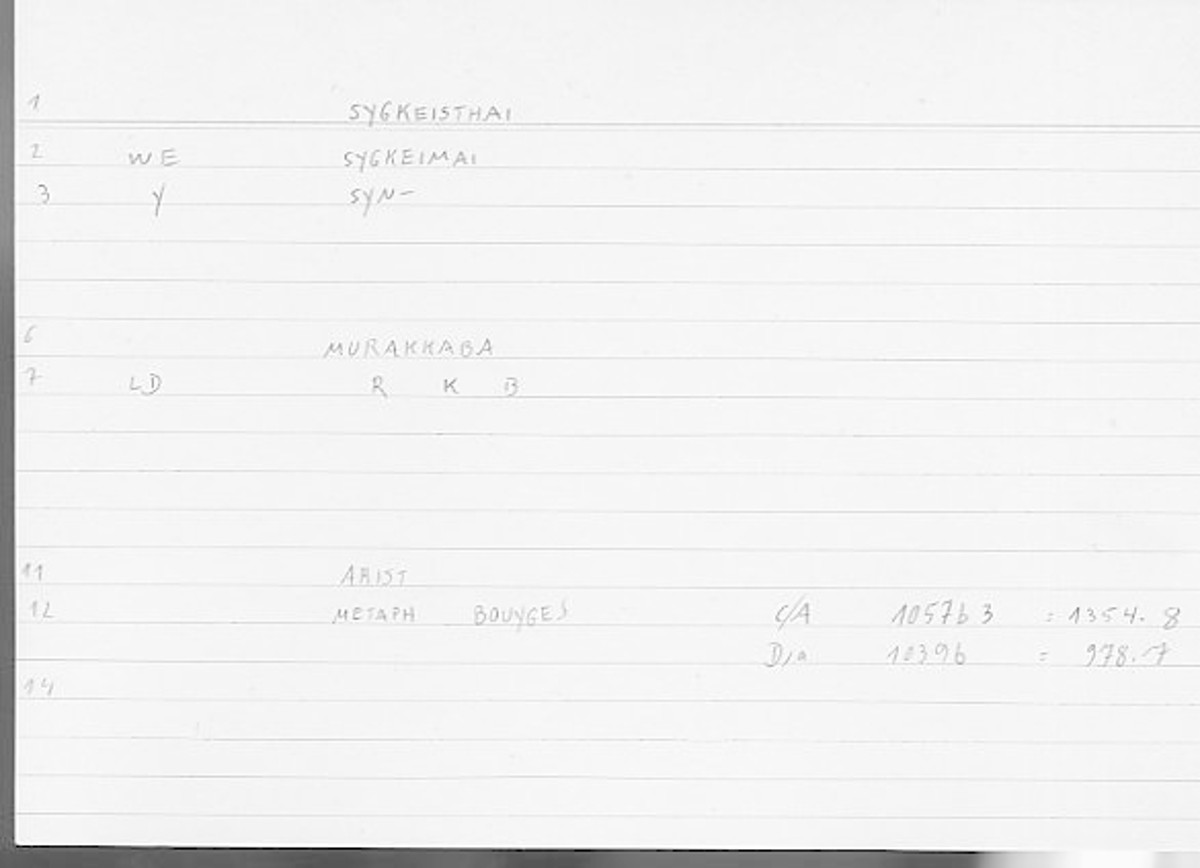 1 SYGKEISTHAI
2 WE SYGKEIMAI
3 Y SYN-
6 MURAKKABA
7 LD R K B
11 ARIST
12 METAPH BOUYGES C/A 1057b 3 = 1354. 8
D/a 1039b = 978.7
14